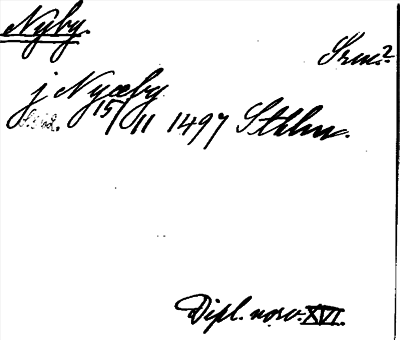 Nyby.
Srm.?
j Nyœby
15/11 1497 Sthlm.
Dipl. norv. XVI.